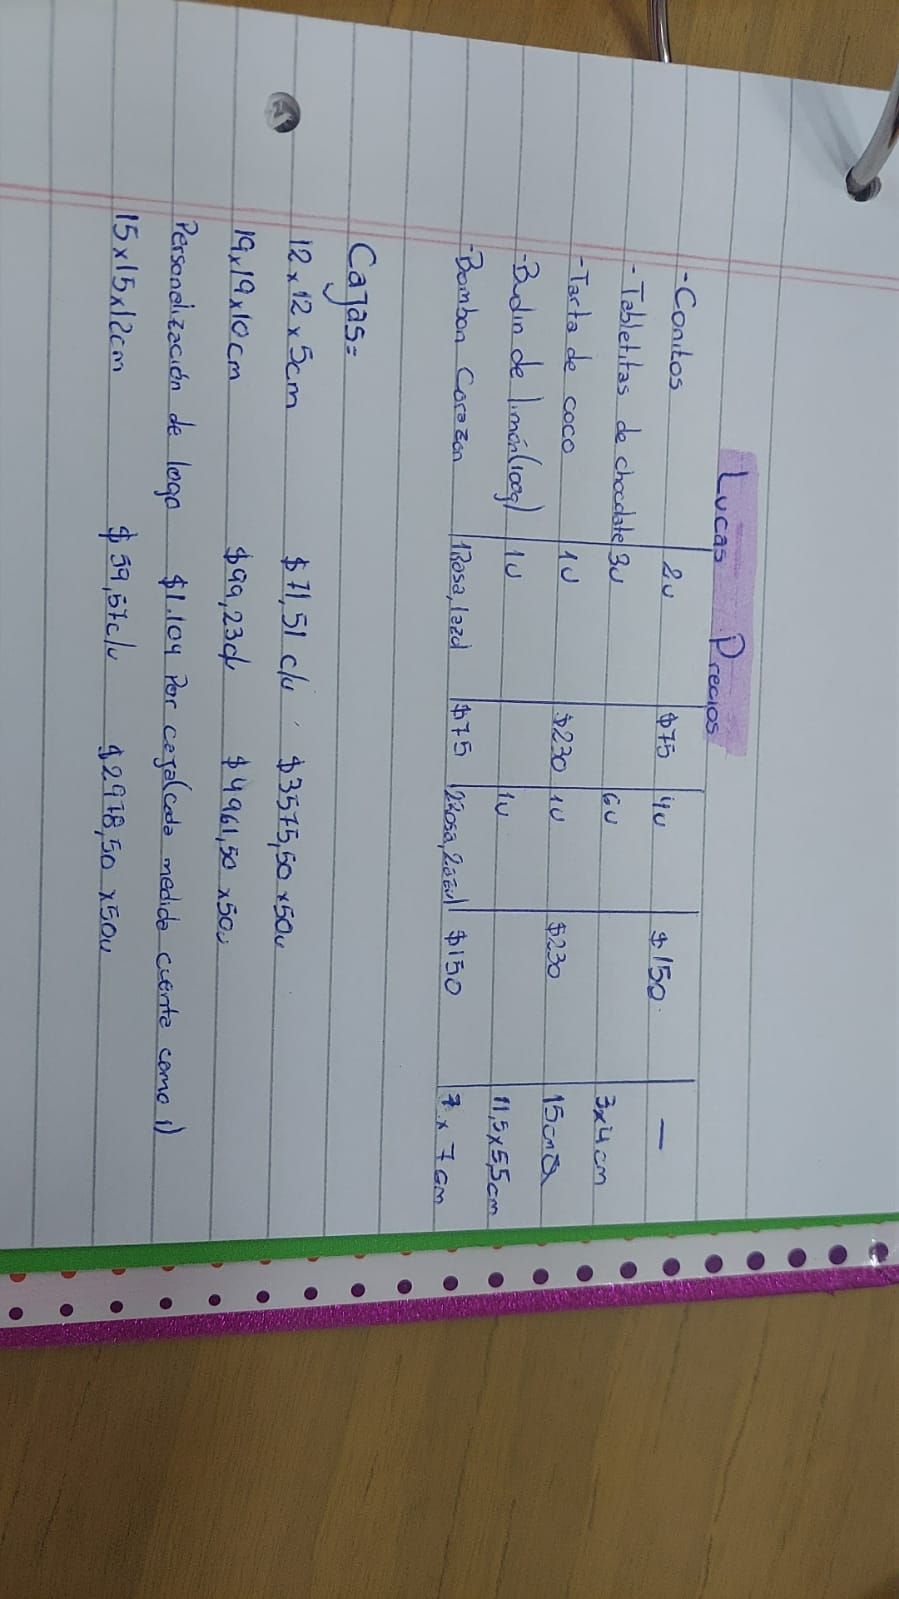 Lucas Precios
- Conitos 2u $75 4u $150 —
- Tabletitas de chocolate 3u 6u 3x4cm
- Tarta de coco 1u $230 1u $230 15cm
- Budin de limón (100g) 1u 1u 11,5x5,5cm
- Bombon Corazon 1Rosa, 1azul $75 2Rosa, 2azul $150 7 x 7cm
Cajas=
12x12x5cm $71,51 c/u $3575,50 x50u
19x19x10cm $99,23c/u $4961,50 x50u
Personalización de logo $1.104 Por caja (cada medida cuenta como 1)
15x15x12cm $59,57c/u $2978,50 x50u